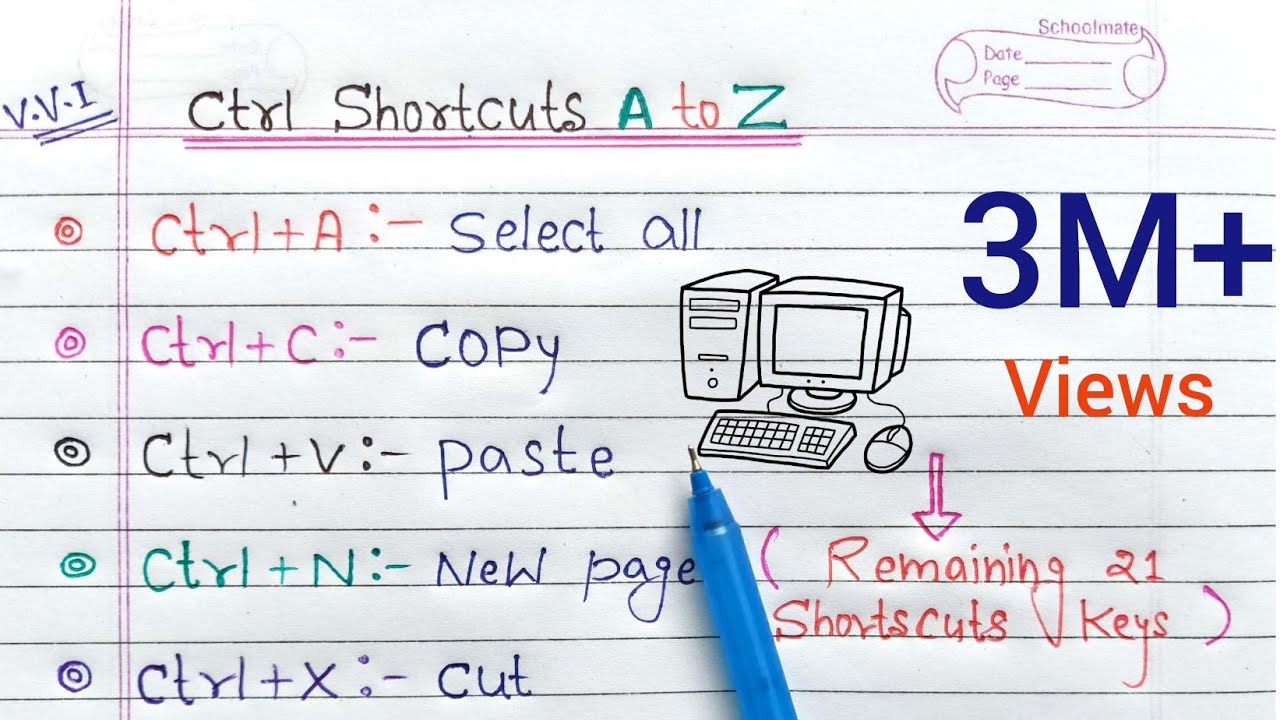 Schoolmate
Date
Page
V.V.I
Ctrl Shortcuts A to Z
Ctrl+A:- Select all
3M+
Views
Ctrl+C:- Copy
Ctrl+V:- paste
Ctrl+N:- New page
( Remaining 21
Shortscuts Keys )
Ctrl+X:- Cut